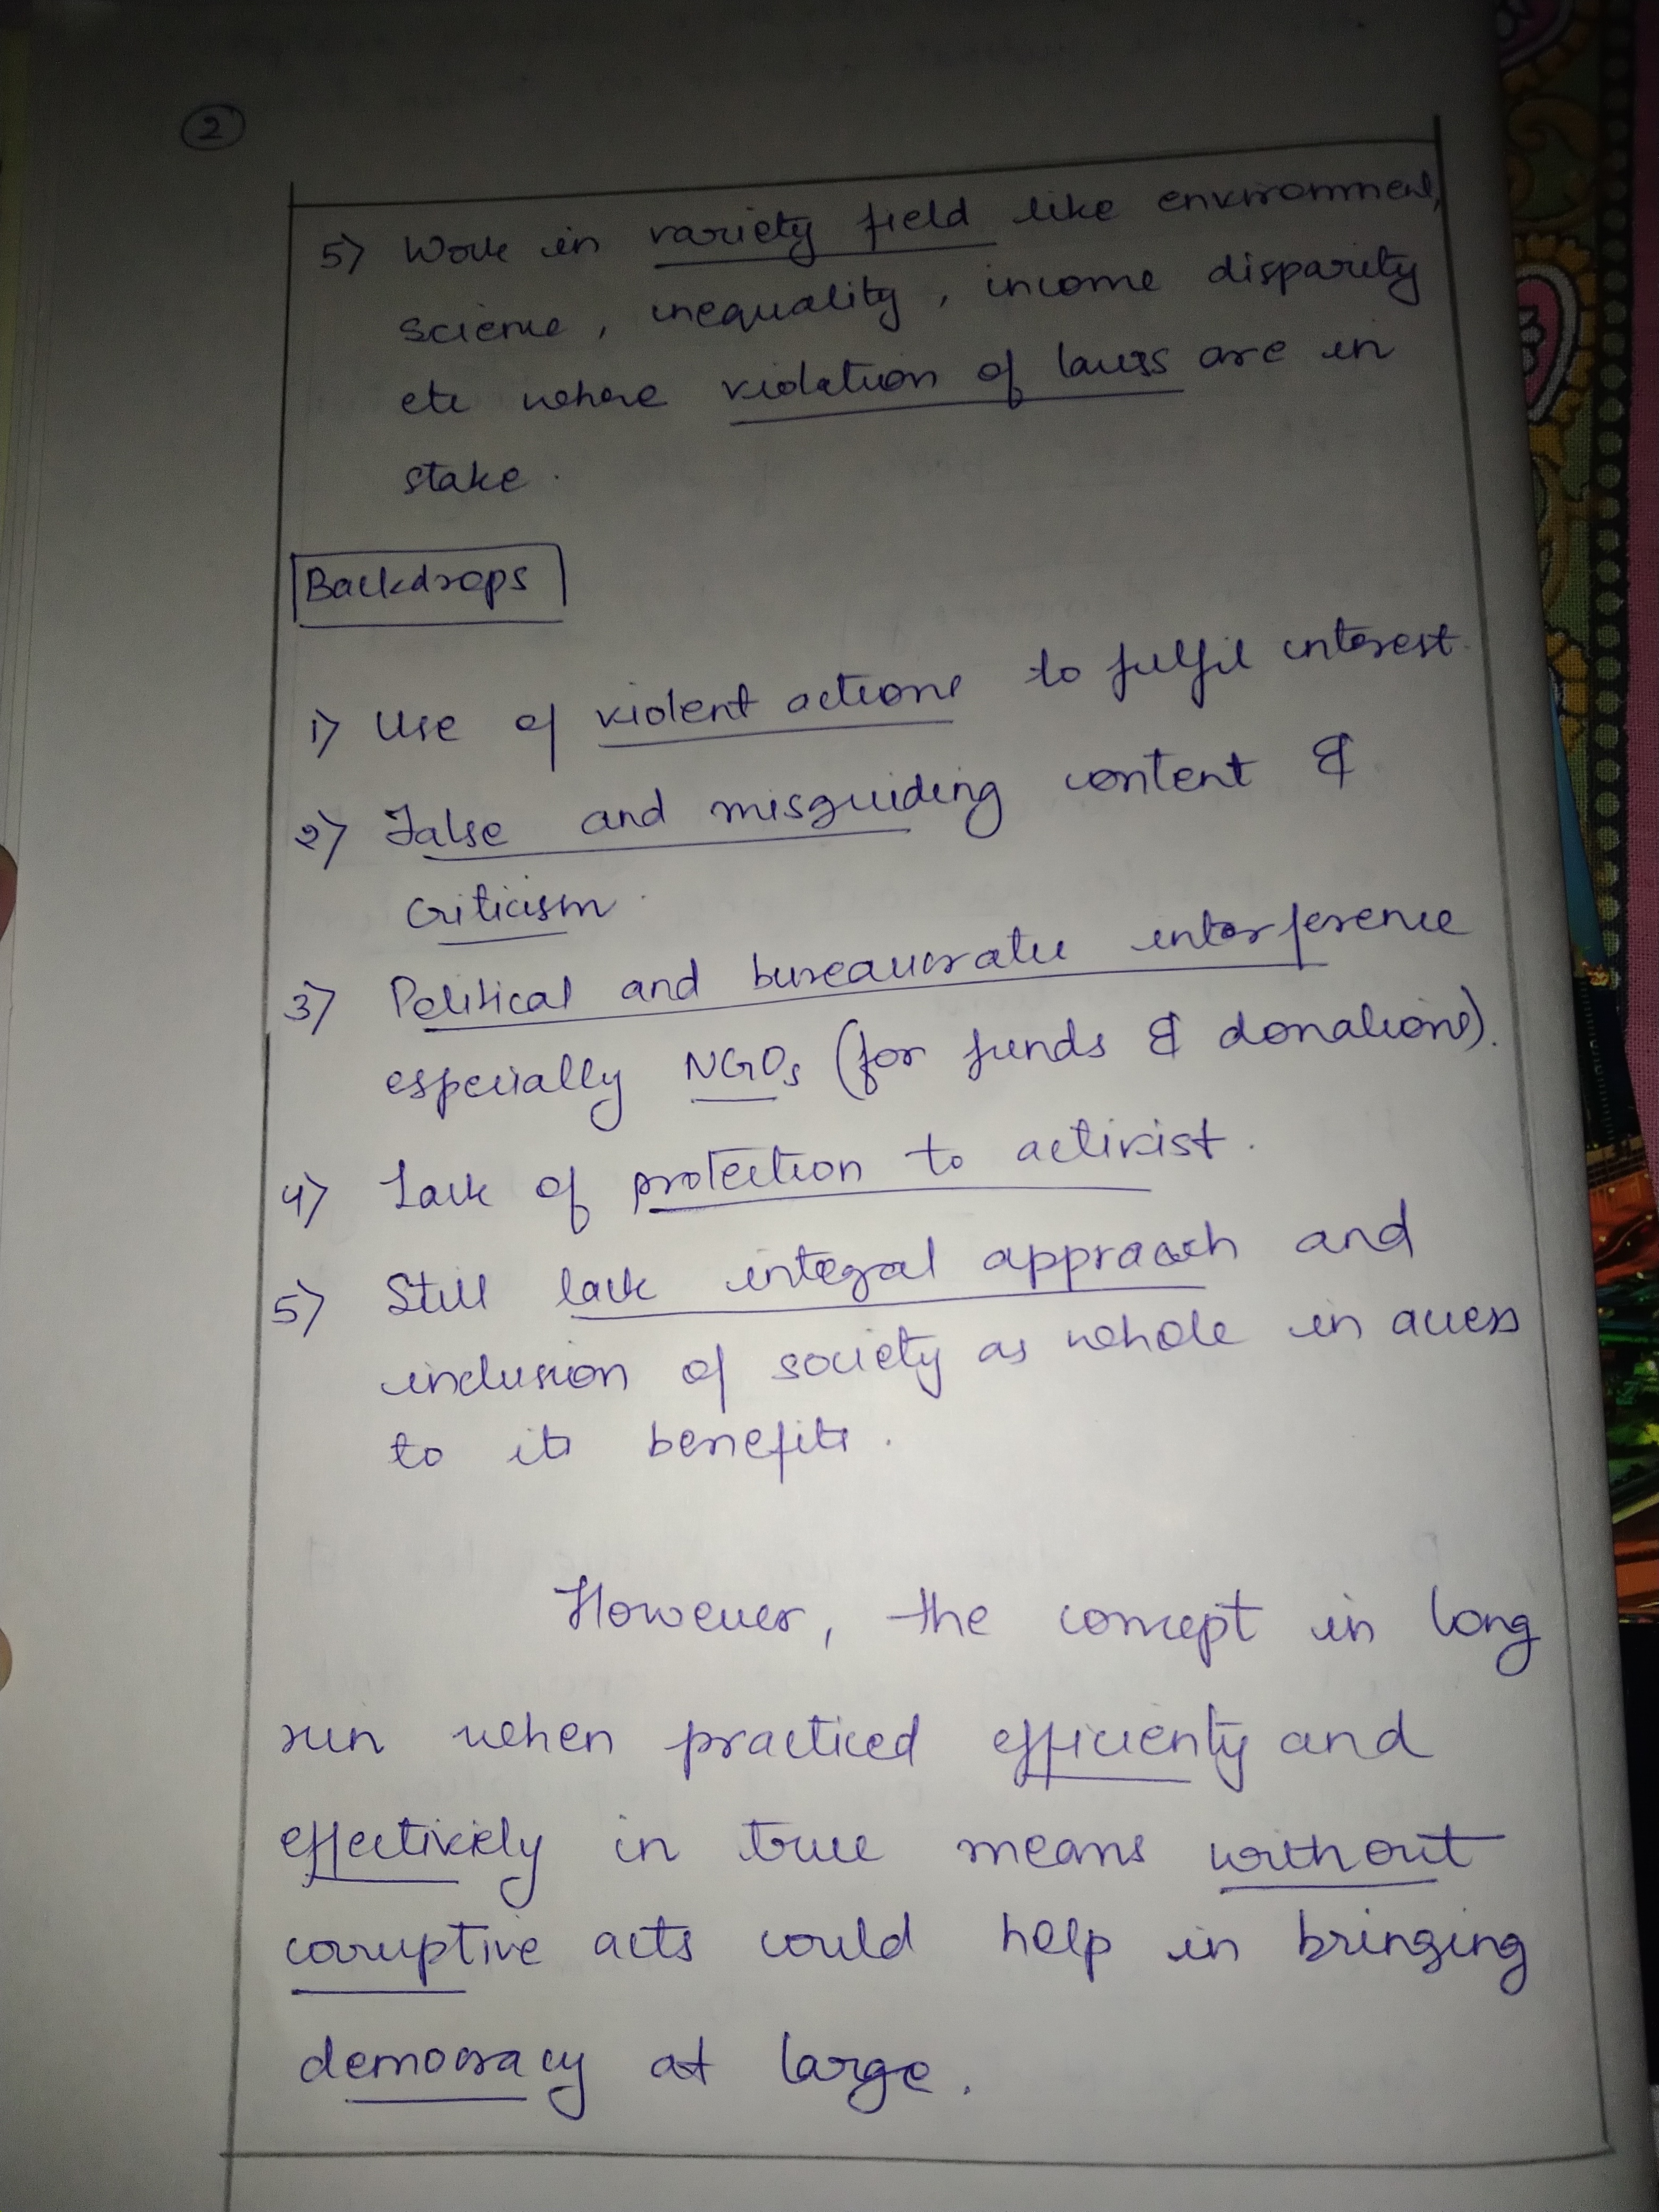 2
5) Work in variety field like environment,
science, inequality, income disparity
etc where violation of laws are in
stake.
Backdrops
1) Use of violent actions to fulfil interest.
2) False and misguiding content &
criticism.
3) Political and bureaucratic interference
especially NGOs (for funds & donations).
4) Lack of protection to activist.
5) Still lack integral appraach and
inclusion of society as whole in access
to its benefits.
However, the concept in long
run when practiced efficienty and
effectively in true means without
corruptive acts could help in bringing
democracy at large.